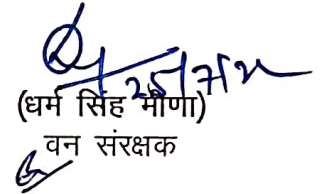 25/7/
(धर्म सिंह मीणा)
वन संरक्षक